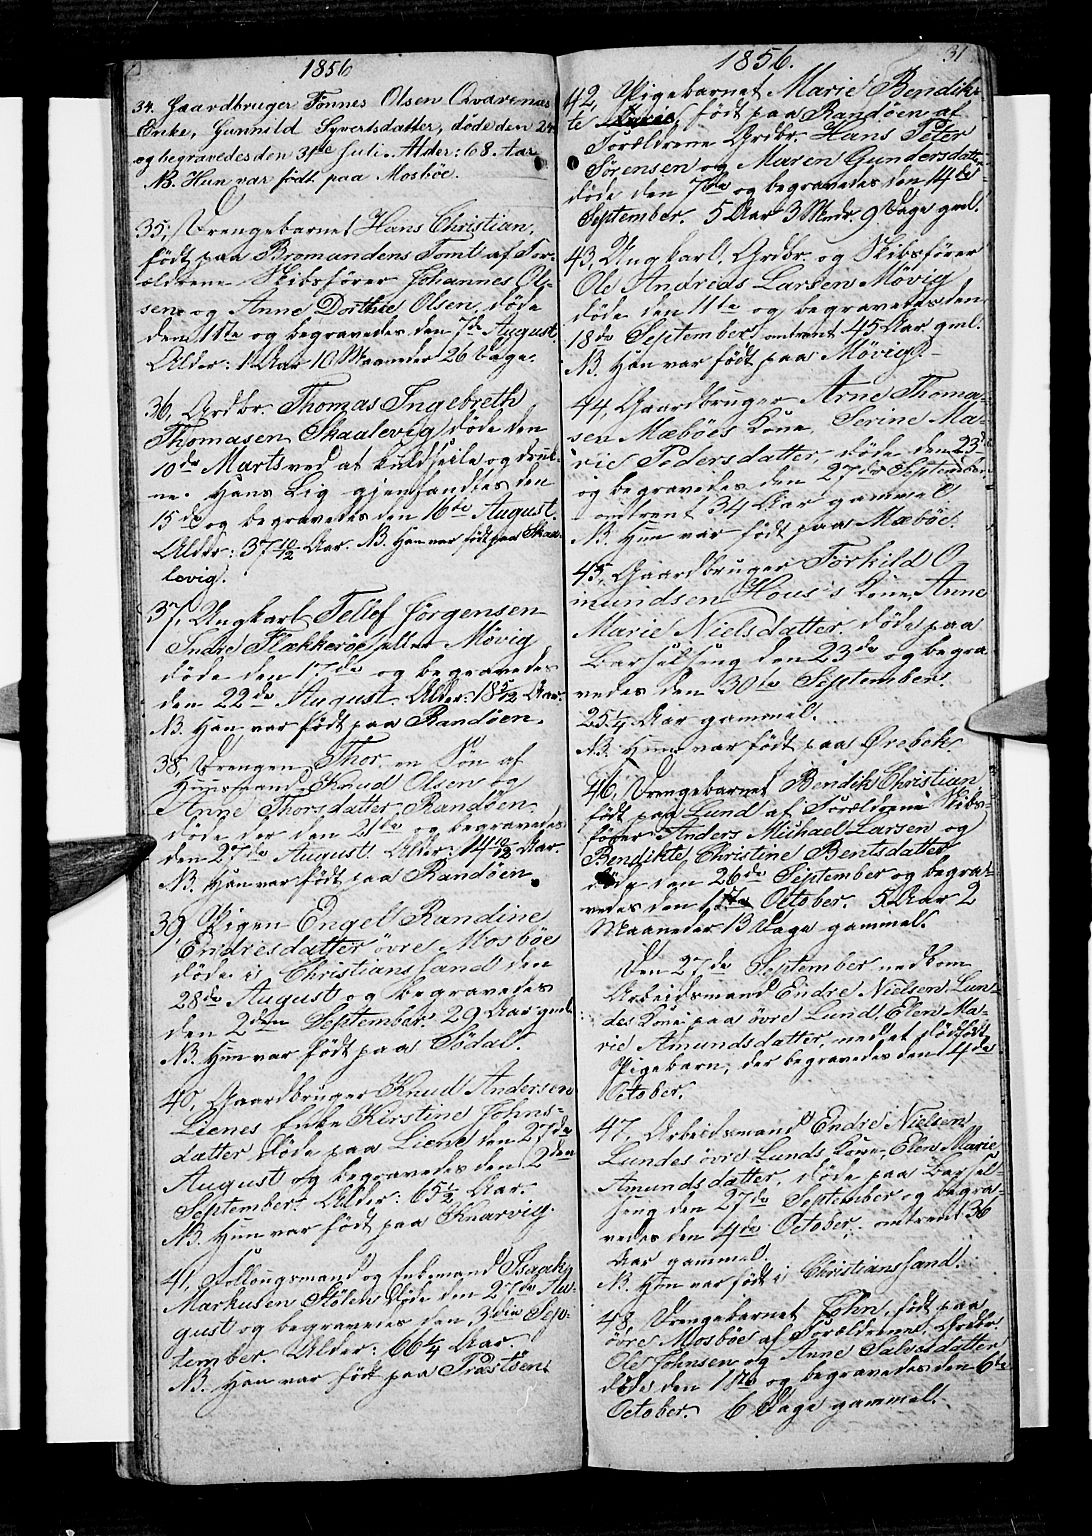 1856
34. Gaardbruger Tønnes Olsen Qvarenæs
Enke, Gunnild Syvertsdatter, døde den 24
og begravedes den 31te Juli. Alder: 68 Aar
NB. Hun var født paa Mosbøe.
35, Drengebarnet Hans Christian,
født paa Bromandens Tomt af For-
ældrene Skibsfører Johannes Ol-
sen og Anne Dorthie Olsen, døde
den 1ste og begravedes den 7de August
Alder: 1 Aar 10 Maaneder 26 Dage.
36, Grdbr. Thomas Ingebreth
Thomasen Skaalevig døde den
10de Marts ved at kuldseile og druk-
ne. Hans Lig gjenfandtes den
15de og begravedes den 16de August.
Alder: 37 10/12 Aar. NB. Han var født paa Skaa-
levig.
37, Ungkarl Tellef Jørgensen
Indre Flækkerøe eller Møvig
døde den 17de og begravedes
den 22de August. Alder: 18 5/12 Aar.
NB. Han var født paa Randøen.
38, Drengen Thor, en Søn af
Huusmand Knud Olsen og
Anne Thorsdatter Randøen
døde der den 21de og begravedes
den 27de August. Alder: 14 10/12 Aar.
NB. Han var født paa Randøen.
39, Pigen Engel Randine
Endresdatter øvre Mosbøe
døde i Christianssand den
28de August og begravedes
den 2den September. 29 Aar gml.
NB. Hun var født paa Sødal.
40, Gaardbruger Knud Andersen
Lienes Enke Kirstine Johns-
datter, døde paa Liene den 27de
August og begravedes den 2den
September. Alder: 65 1/2 Aar.
NB. Hun var født paa Knarvig.
41, Føllougsmand og Enkemand Isaak
Markusen Stølen døde den 27de Au-
gust og begravedes den 3die Sep-
tember. Alder: 66 1/4 Aar.
NB. Han var født paa Træstøen
1856. 31
42, Pigebarnet Marie Bendik-
te, født paa Randøen af
Forældrene Grdbr. Hans Peter
Sørensen og Maren Gundersdatter
døde den 7de og begravedes den 14de
September. 5 Aar 3 Mndr. 9 Dage gml.
43, Ungkarl, Grdbr. og Skibsfører
Ole Andreas Larsen Møvig
døde den 11te og begravedes den
18de September, omtrent 45 Aar gml.
NB. Han var født paa Møvig.
44, Gaardbruger Arne Thoma-
sen Mæbøes Kone, Serine Ma-
rie Pedersdatter, døde den 23de
og begravedes den 27de September,
omtrent 34 Aar gammel
NB. Hun var født paa Mæbøe.
45, Gaardbruger Torkild O
mundsen Høus's Kone Anne
Marie Nielsdatter, døde paa
Barselseng den 23de og begra-
vedes den 30te September.
25 1/4 Aar gammel.
NB. Hun var født paa Ørebek
46, Drengebarnet Bendik Christian
født paa Lund af Forældrene Skibs-
fører Anders Michael Larsen og
Bendikte Christine Bentsdatter
døde den 26de September og begra-
vedes den 1ste October. 5 Aar 2
Maaneder 13 Dage gammel.
Den 27de September nedkom
Arbeidsmand Endre Nielsen Lun-
des Kone paa øvre Lund, Elen Ma-
rie Amundsdatter, med et dødfødt
Pigebarn, der begravedes den 4de
October.
47, Arbeidsmand Endre Nielsen
Lundes øvre Lunds Kone, Elen Marie
Amundsdatter, døde paa Barsel-
seng den 27de September og begra-
vedes den 4de October, omtrent 36
Aar gammel.
NB. Hun var født i Christianssand.
48, Drengebarnet John, født paa
øvre Mosbøe af Forældrene Grdbr.
Ole Johnsen og Anne Salvesdatter
døde den 1ste og begravedes den 6te
October. 6 Dage gammel.